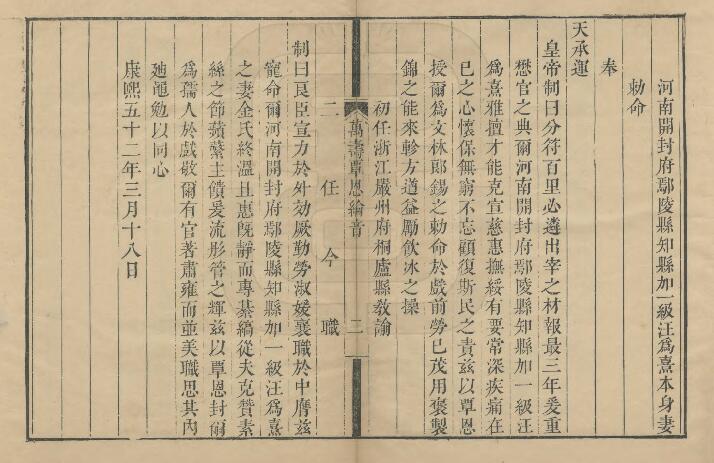 河南開封府鄢陵縣知縣加一級汪爲熹本身妻
勅命
奉
天承運
皇帝制曰分符百里必遴出宰之材報最三年爰重
懋官之典爾河南開封府鄢陵縣知縣加一級汪
爲熹雅擅才能克宣慈惠撫綏有要常深疾痛在
已之心懷保無窮不忘顧復斯民之責茲以覃恩
授爾爲文林郎錫之勅命於戲前勞已茂用褒製
錦之能來軫方遒益勵飲冰之操
初任浙江嚴州府桐廬縣教諭
萬壽覃恩綸音 二
二任今職
制曰良臣宣力於外効厥勤勞淑媛襄職於中膺茲
寵命爾河南開封府鄢陵縣知縣加一級汪爲熹
之妻金氏終溫且惠既靜而專綦縞從夫克贊素
絲之節蘋蘩主饋爰流彤管之輝茲以覃恩封爾
爲孺人於戲敬爾有官著肅雍而並美職思其內
廸黽勉以同心
康熙五十二年三月十八日